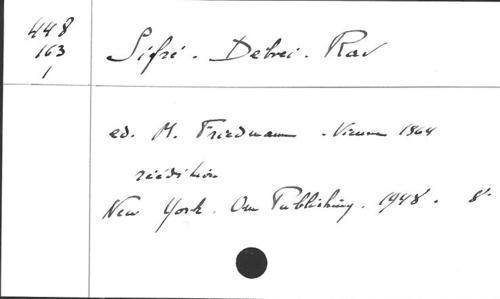 448
163
1
Sifré. Debrei. Rav
ed. M. Friedmann. Vienne 1864
réédition
New York. Om Publishing. 1948. 8°